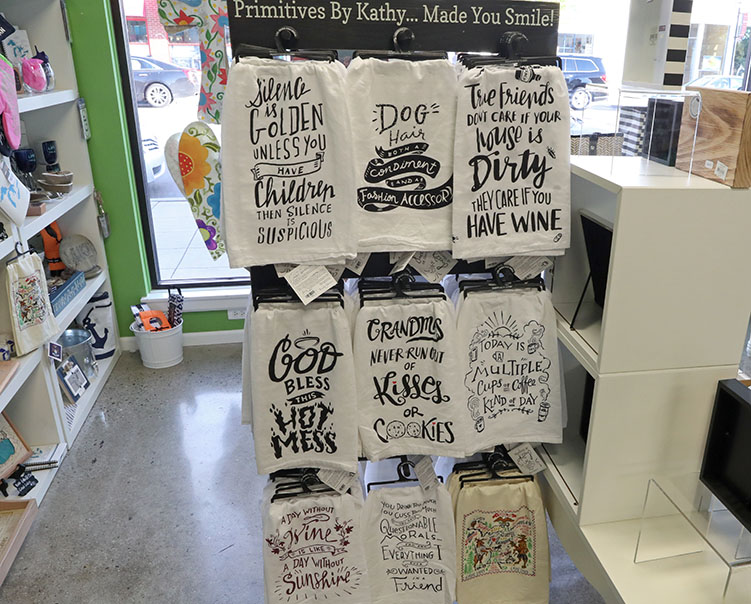 Primitives By Kathy... Made You Smile!
Silence
is
GOLDEN
UNLESS YOU
HAVE
Children
THEN SILENCE
IS
SUSPICIOUS
DOG
Hair
BOTH A
Condiment
AND A
Fashion Accessory
True friends
DON'T CARE IF YOUR
House is
Dirty
THEY CARE IF YOU
HAVE WINE
GOD
BLESS
THIS
HOT
MESS
GRANDMAS
NEVER RUN OUT
OF
Kisses
OR
COOKIES
TODAY IS
A
MULTIPLE
Cups of Coffee
KIND OF DAY
A DAY WITHOUT
Wine
IS LIKE
A DAY WITHOUT
Sunshine
YOU DRINK TOO MUCH
YOU CUSS TOO MUCH
YOU HAVE
QUESTIONABLE
MORALS
EVERYTHING I
WANTED
IN A
Friend